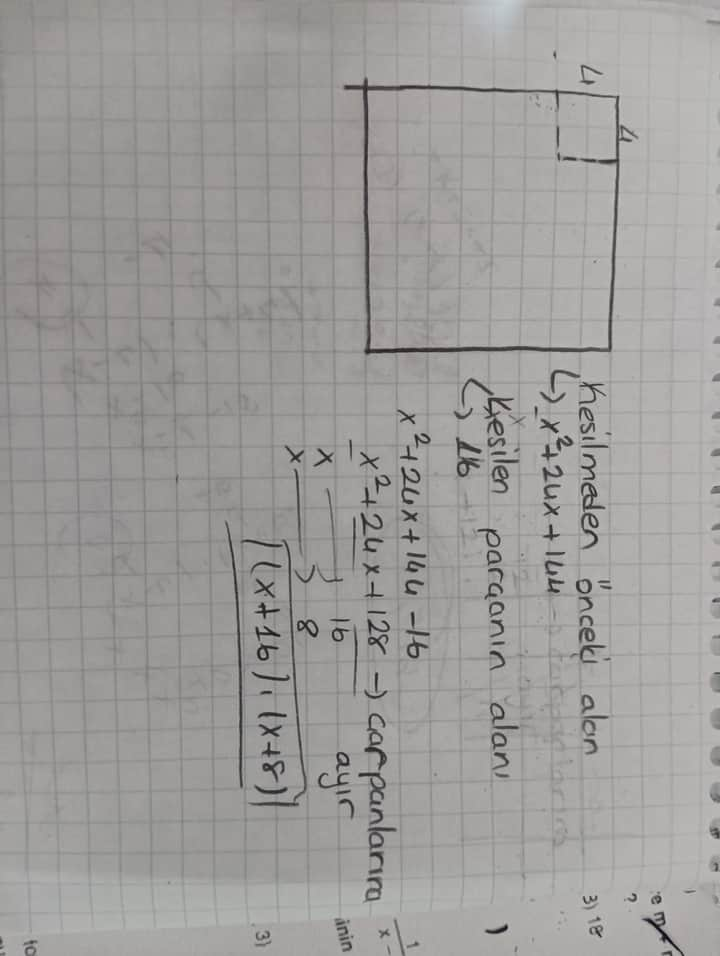 4
4
Kesilmeden önceki alan
↳ x²+24x+144
Kesilen parçanın alanı
↳ 16
x²+24x+144-16
x²+24x+128 → çarpanlarına
ayır
x 16
x 8
(x+16).(x+8)
3) 18
?
3)
inin